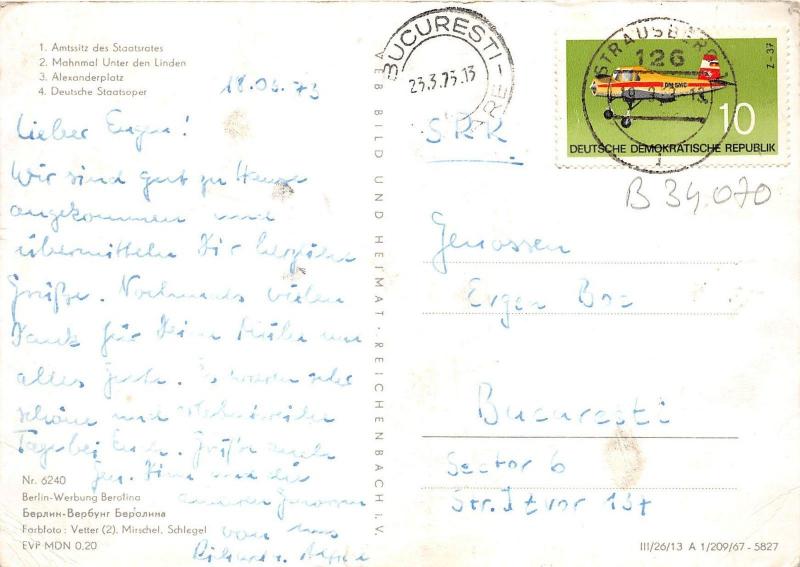 1. Amtssitz des Staatsrates
2. Mahnmal Unter den Linden
3. Alexanderplatz
4. Deutsche Staatsoper
18.03.73
Lieber Eugen!
Wir sind gut zu Hause
angekommen und
übermitteln Dir herzliche
Grüße. Nochmals vielen
Dank für Deine Mühe und
alles Gute. Es waren sehr
schöne und
Tage bei Euch. Grüße auch
Gen. und die
anderen Genossen
von uns
Nr. 6240
Berlin-Werbung Berolina
Берлин-Вербунг Беролина
Farbfoto: Vetter (2), Mirschel, Schlegel
EVP MDN 0,20
VEB BILD UND HEIMAT · REICHENBACH I. V.
BUCURESTI
23.3.73.13
SRR
STRAUSBERG 1
126
Z-37
DM-SMC
10
DEUTSCHE DEMOKRATISCHE REPUBLIK
B 34.070
Genossen
Bucuresti
Sector 6
Str. Izvor 137
III/26/13 A 1/209/67 - 5827